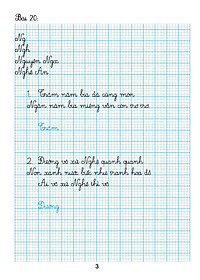 Bài 20:
Ng
Ngh
Nguyên Ngọc
Nghệ An
1. Trăm năm bia đá cũng mòn
Ngàn năm bia miệng vẫn còn trơ trơ
Trăm
2. Đường vô xứ Nghệ quanh quanh
Non xanh nước biếc như tranh họa đồ
Ai vô xứ Nghệ thì vô
Đường
3